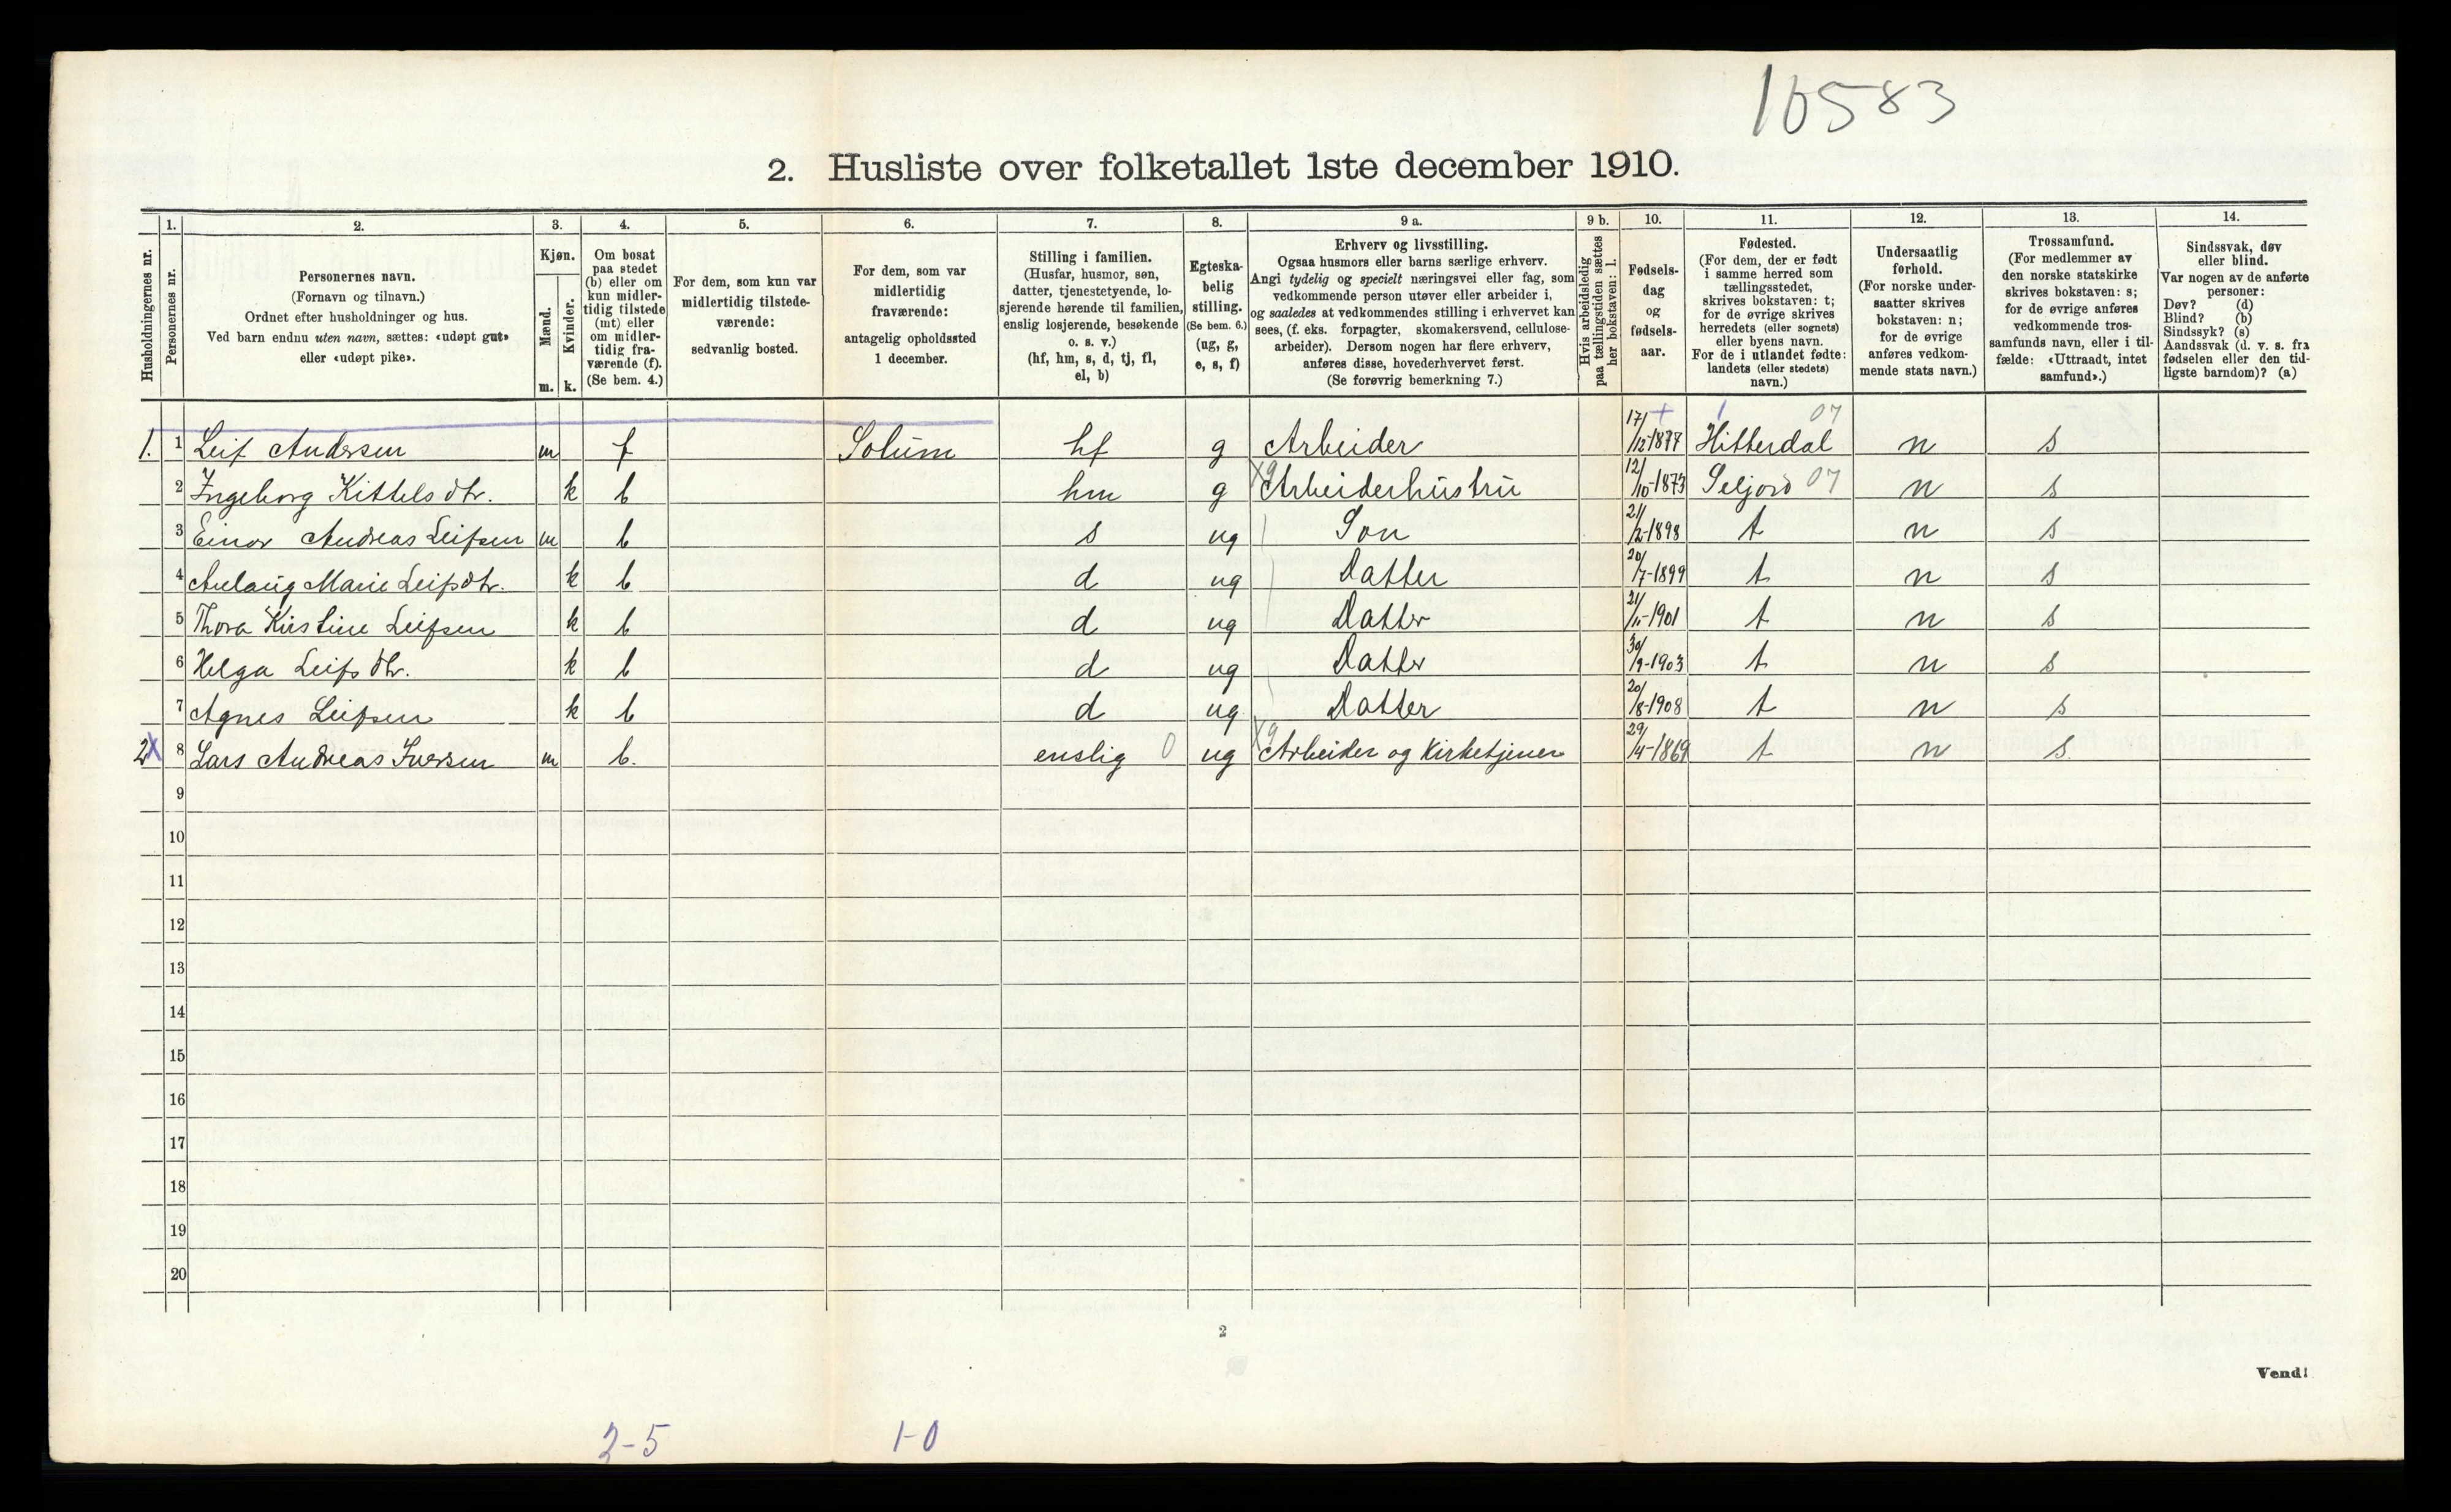 10583
2. Husliste over folketallet 1ste december 1910.
Husholdningernes nr.
1.
Personernes nr.
2.
Personernes navn.
(Fornavn og tilnavn.)
Ordnet efter husholdninger og hus.
Ved barn endnu uten navn, sættes: «udøpt gut»
eller «udøpt pike».
3.
Kjøn.
Mænd.
Kvinder.
m. k.
4.
Om bosat
paa stedet
(b) eller om
kun midler-
tidig tilstede
(mt) eller
om midler-
tidig fra-
værende (f).
(Se bem. 4.)
5.
For dem, som kun var
midlertidig tilstede-
værende:
sedvanlig bosted.
6.
For dem, som var
midlertidig
fraværende:
antagelig opholdssted
1 december.
7.
Stilling i familien.
(Husfar, husmor, søn,
datter, tjenestetyende, lo-
sjerende hørende til familien,
enslig losjerende, besøkende
o. s. v.)
(hf, hm, s, d, tj, fl,
el, b)
8.
Egteska-
belig
stilling.
(Se bem. 6.)
(ug, g,
e, s, f)
9 a.
Erhverv og livsstilling.
Ogsaa husmors eller barns særlige erhverv.
Angi tydelig og specielt næringsvei eller fag, som
vedkommende person utøver eller arbeider i,
og saaledes at vedkommendes stilling i erhvervet kan
sees, (f. eks. forpagter, skomakersvend, cellulose-
arbeider). Dersom nogen har flere erhverv,
anføres disse, hovederhvervet først.
(Se forøvrig bemerkning 7.)
9 b.
Hvis arbeidsledig
paa tællingstiden sættes
her bokstaven: l.
10.
Fødsels-
dag
og
fødsels-
aar.
11.
Fødested.
(For dem, der er født
i samme herred som
tællingsstedet,
skrives bokstaven: t;
for de øvrige skrives
herredets (eller sognets)
eller byens navn.
For de i utlandet fødte:
landets (eller stedets)
navn.)
12.
Undersaatlig
forhold.
(For norske under-
saatter skrives
bokstaven: n;
for de øvrige
anføres vedkom-
mende stats navn.)
13.
Trossamfund.
(For medlemmer av
den norske statskirke
skrives bokstaven: s;
for de øvrige anføres
vedkommende tros-
samfunds navn, eller i til-
fælde: «Uttraadt, intet
samfund».)
14.
Sindssvak, døv
eller blind.
Var nogen av de anførte
personer:
Døv? (d)
Blind? (b)
Sindssyk? (s)
Aandssvak (d. v. s. fra
fødselen eller den tid-
ligste barndom)? (a)
1. 1 Leif Andersen m f Solum hf g Arbeider 17/12-1877 Hitterdal 07 n s
2 Ingeborg Kittelsdtr. k b hm g Arbeiderhustru 12/10-1873 Seljord 07 n s
3 Einar Andreas Leifsen m b s ug Søn 21/2-1898 t n s
4 Aulaug Marie Leifsdtr. k b d ug Datter 20/7-1899 t n s
5 Thora Kirstine Leifsen k b d ug Datter 21/11-1901 t n s
6 Helga Leifsdtr. k b d ug Datter 30/9-1903 t n s
7 Agnes Leifsen k b d ug Datter 20/8-1908 t n s
2 X 8 Lars Andreas Iversen m b. enslig 0 ug Arbeider og Kirketjener 29/4-1869 t n s.
9
10
11
12
13
14
15
16
17
18
19
20
2
Vend!
2-5 1-0